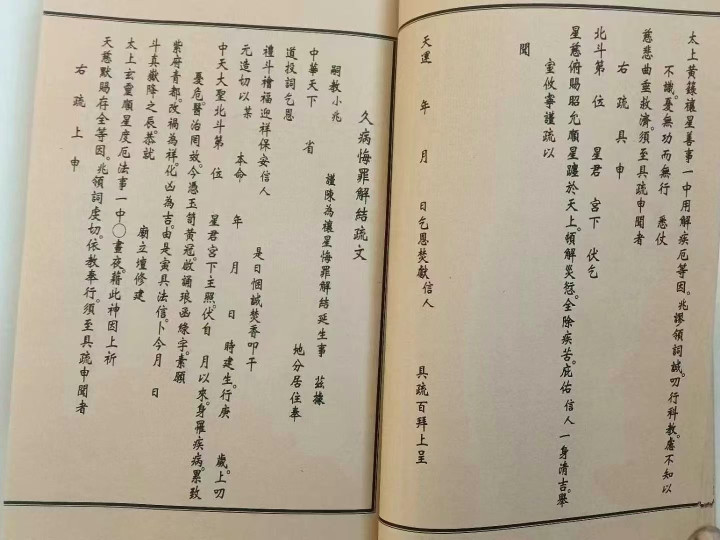 太上黃籙禳星善事一中用解疾厄等因。兆謬領詞誠。叨行科教慮不知以
不識。憂無功而無行 悉仗
慈悲曲垂救濟。須至具疏申聞者
右 疏 具 申
北斗第 位 星君 宮下 伏乞
星慈俯賜昭允順星躔於天上。領解災愆。全除疾苦。庇佑 信人 一身清吉。舉
室攸寧謹疏以
聞
天運 年 月 日乞恩焚獻信人 具疏百拜上呈
久病悔罪解結疏文
嗣教小兆 謹陳為禳星悔罪解結延生事 茲據
中華天下 省 地分居住奉
道投詞乞恩
禮斗禬福迎祥保安信人 是日悃誠焚香叩干
元造切以某 本命 年 月 日 時建生。行庚 歲。上叨
中天大聖北斗第 位 星君宮下主照。伏自 月以來。身罹疾病。累致
憂危。醫治罔效。今憑玉笥黃冠。啟誦琅函綠字。素願
紫府青都。改禍為祥。化凶為吉。由是寅具法信。卜今月 日
斗真嶽降之辰。恭就 廟立壇修建
太上玄靈順星度厄法事一中〇晝夜。藉此神因上祈
天慈默賜存全等因。兆領詞虔切。依教奉行。須至具疏申聞者
右 疏 上 申